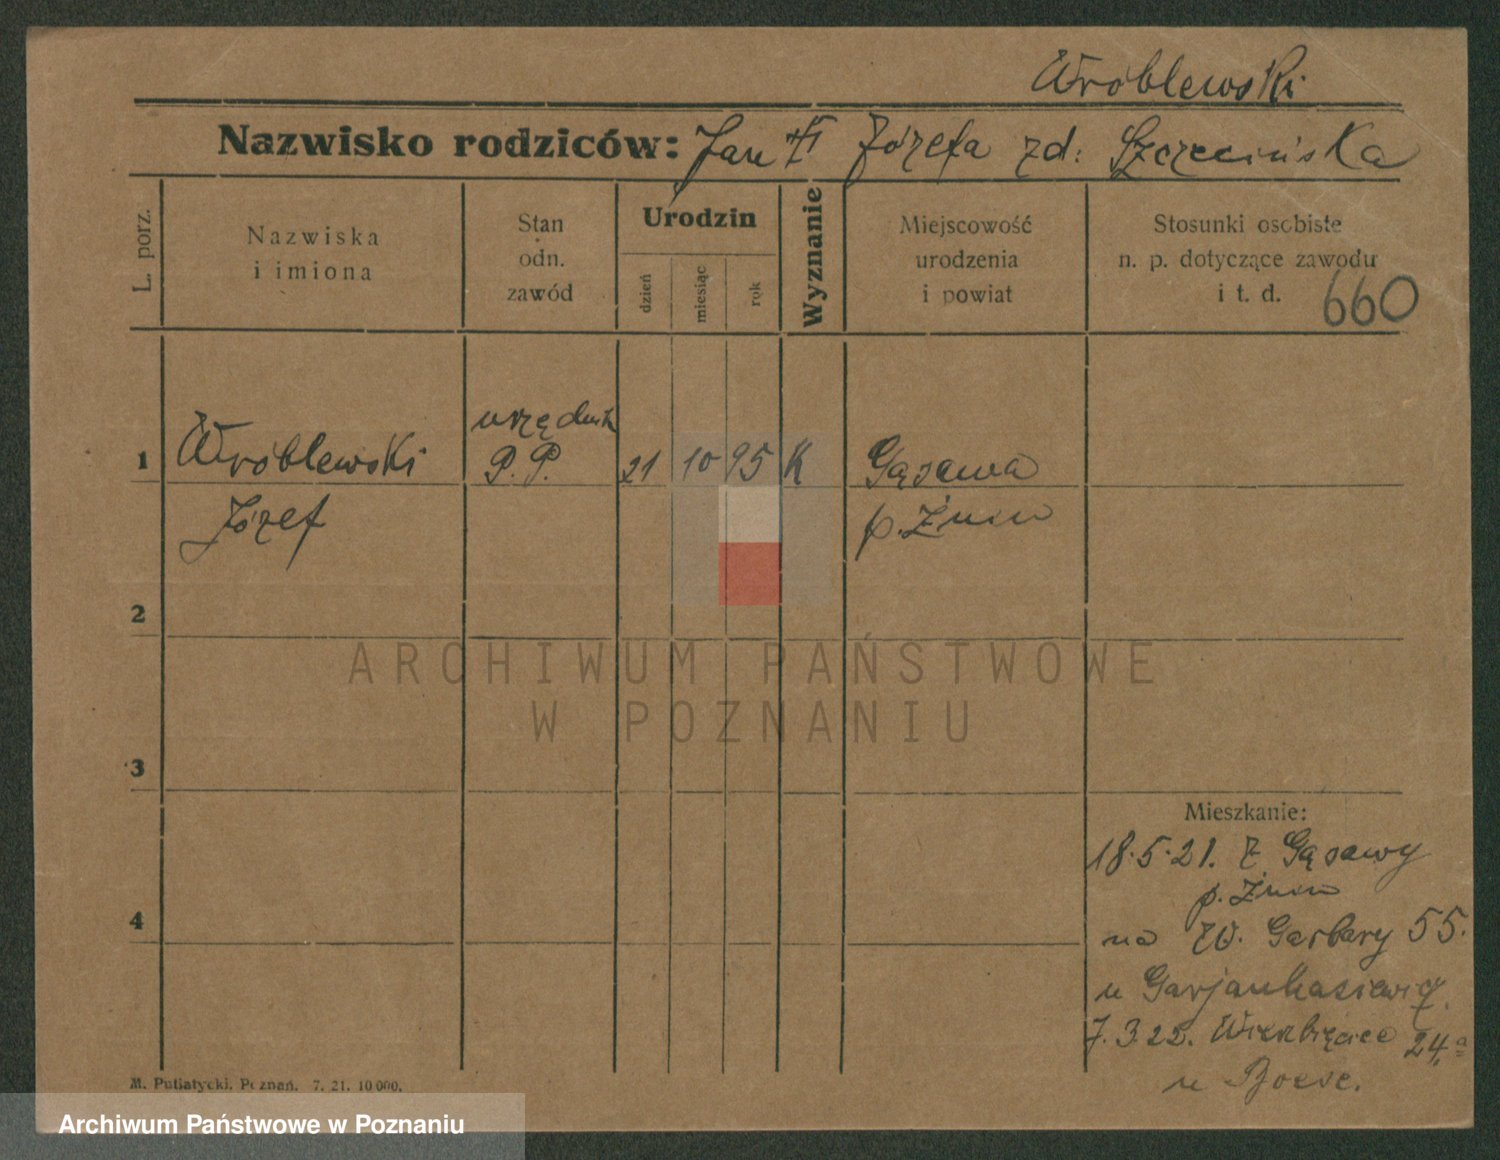 Wróblewski
Nazwisko rodziców: Jan Józefa zd: Szczecińska
L. porz.
Nazwiska
i imiona
Stan
odn.
zawód
Urodzin
dzień
miesiąc
rok
Wyznanie
Miejscowość
urodzenia
i powiat
Stosunki osobiste
n. p. dotyczące zawodu
i t. d. 660
1 Wróblewski urzędnik P. P. 21 10 95 K Gąsawa
Józef p. Żnin
2
3
4
Mieszkanie:
18.5.21. z Gąsawy
p. Żnin
na W. Garbary 55.
u
7.3.22. Wierzbięcice 24.a
u Boese.
M. Putiatycki, Poznań. 7. 21. 10 000.
ARCHIWUM PAŃSTWOWE
W POZNANIU
Archiwum Państwowe w Poznaniu